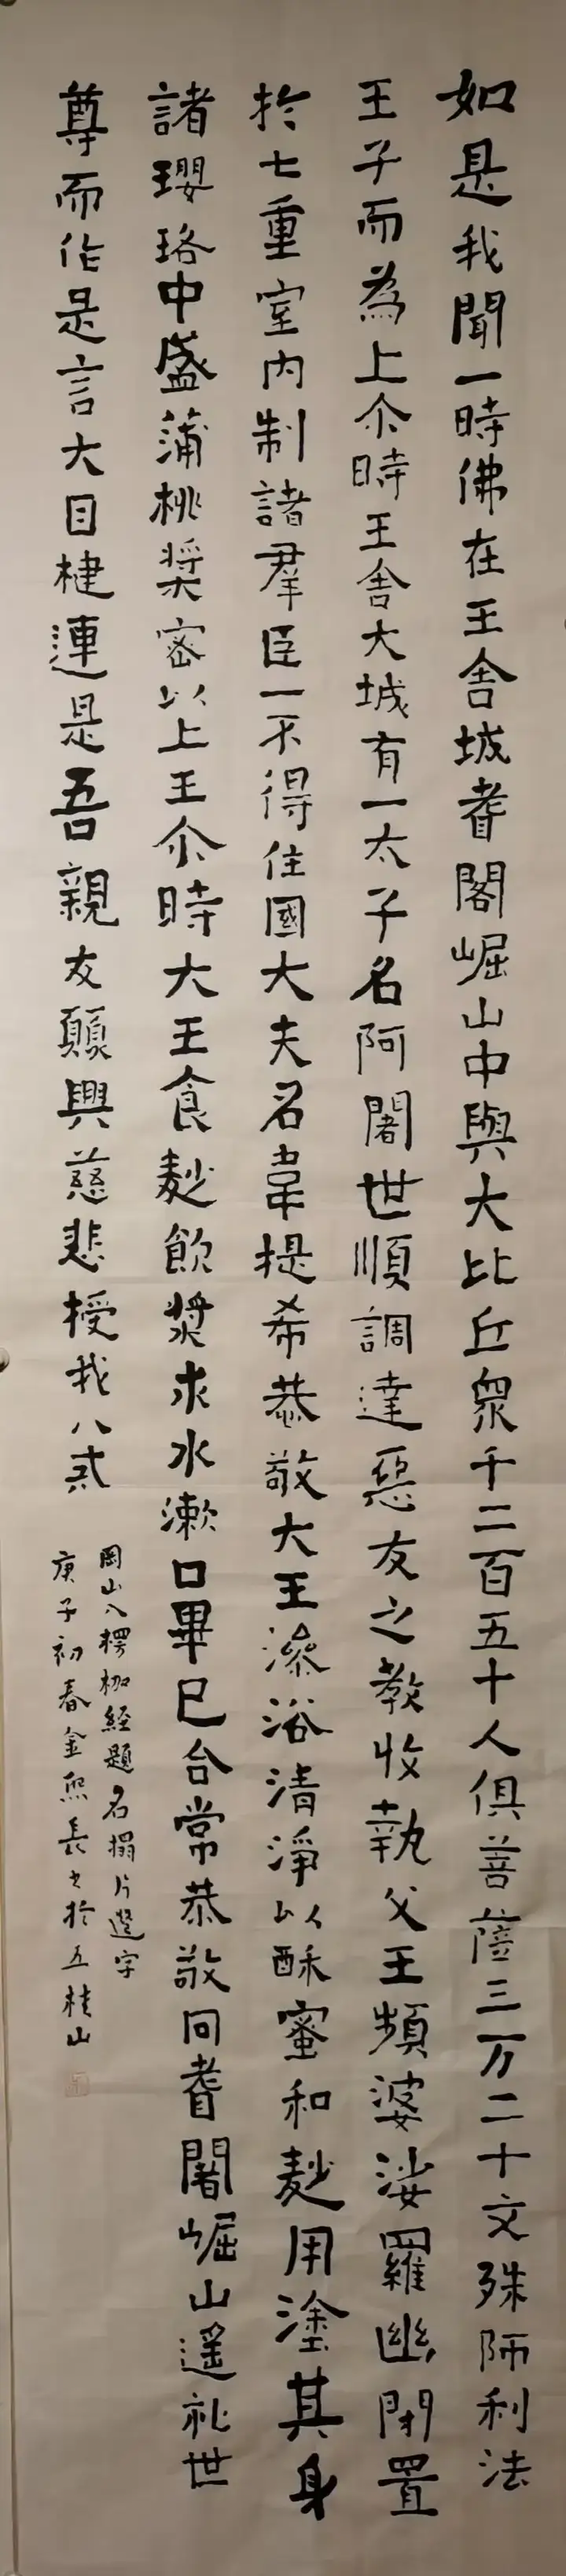 如是我聞一時佛在王舍城耆闍崛山中與大比丘衆千二百五十人俱菩薩三万二十文殊師利法
王子而為上尒時王舍大城有一太子名阿闍世順調達惡友之教收執父王頻婆娑羅幽閉置
扵七重室内制諸羣臣一不得住國大夫名韋提希恭敬大王澡浴清淨以酥蜜和麨用塗其身
諸瓔珞中盛蒲桃漿密以上王尒時大王食麨飲漿求水漱口畢已合常恭敬向耆闍崛山遥礼世
尊而作是言大目揵連是吾親友願興慈悲授我八戒
岡山入楞枷經題名搨片選字
庚子初春金熙長書於五桂山